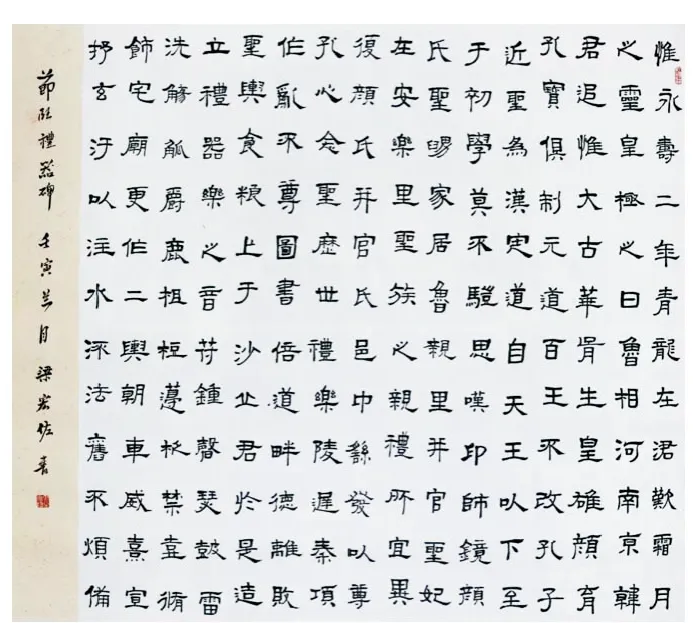 惟永壽二年青龍在涒歎霜月
之靈皇極之日魯相河南京韓
君追惟大古華胥生皇雄顏育
孔寶俱制元道百王不改孔子
近聖為漢定道自天王以下至
于初學莫不驥思嘆卬師鏡顏
氏聖舅家居魯親里并官聖妃
在安樂里聖族之親禮所宜異
復顏氏并官氏邑中繇發以尊
孔心念聖歷世禮樂陵遲秦項
作亂不尊圖書倍道畔德離敗
聖輿食糧亡于沙丘君於是造
立禮器樂之音苻鍾磬瑟鼓雷
洗觴觚爵鹿柤梪籩柉禁壺脩
飾宅廟更作二輿朝車威熹宣
抒玄汙以注水流法舊不煩備
節臨禮器碑 壬寅兰月 梁宏佐書